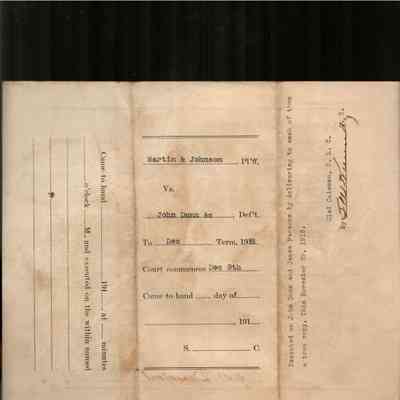 Came to hand 191 at minutes
o'clock M. and executed on the within named
Martin & Johnson Pl'ff.
Vs.
John Dunn &c Def't.
To Dec Term, 191
Court commences Dec 9th
Came to hand day of
, 191
S. C.
Executed on John Dunn and Jesse Parsons by delivering to each of them
a true copy. This November 29, 1918.
Coleman, S. L. C.
By D. S.